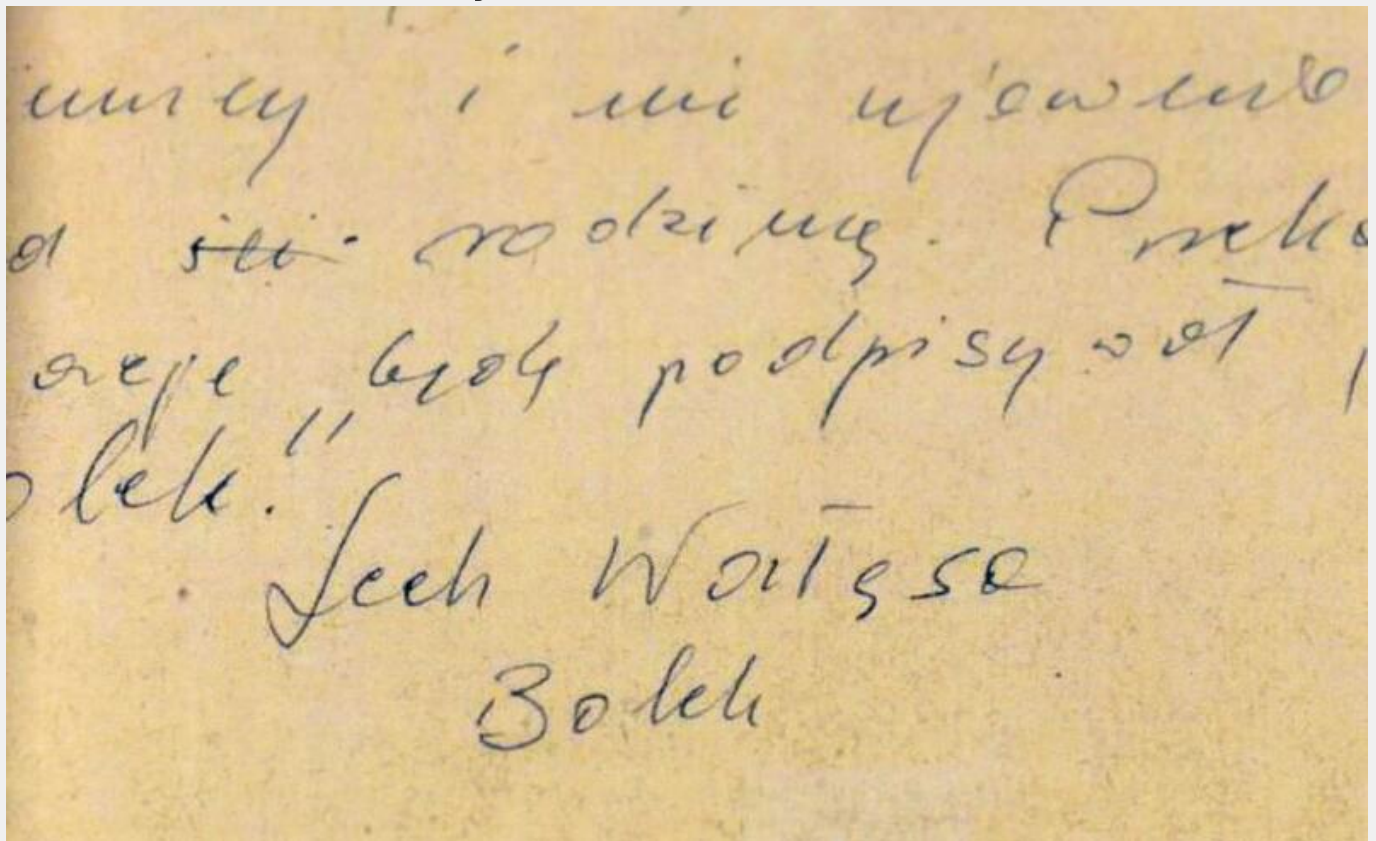 i nie ujawnię
rodziną. Przeka
acje będę podpisywał
olek."
Lech Wałęsa
Bolek